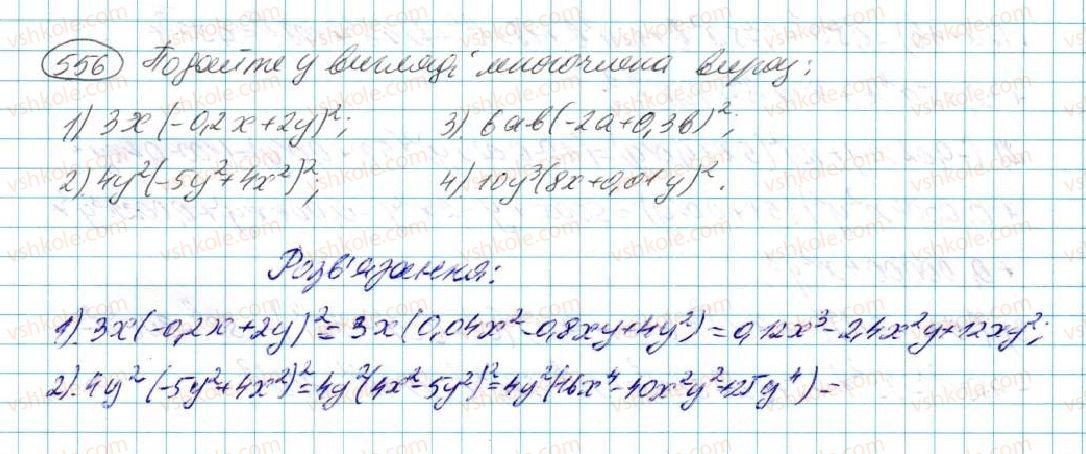 556 Подайте у вигляді многочлена вираз:
1) 3x(-0,2x+2y)²; 3) 6ab(-2a+0,3b)²;
2) 4y²(-5y²+4x²)²; 4) 10y³(8x+0,01y)².
Розв'язання:
1) 3x(-0,2x+2y)² = 3x(0,04x²-0,8xy+4y²) = 0,12x³-2,4x²y+12xy²;
2). 4y² (-5y²+4x²)² = 4y²(4x²-5y²)² = 4y²(16x⁴-40x²y²+25y⁴) =